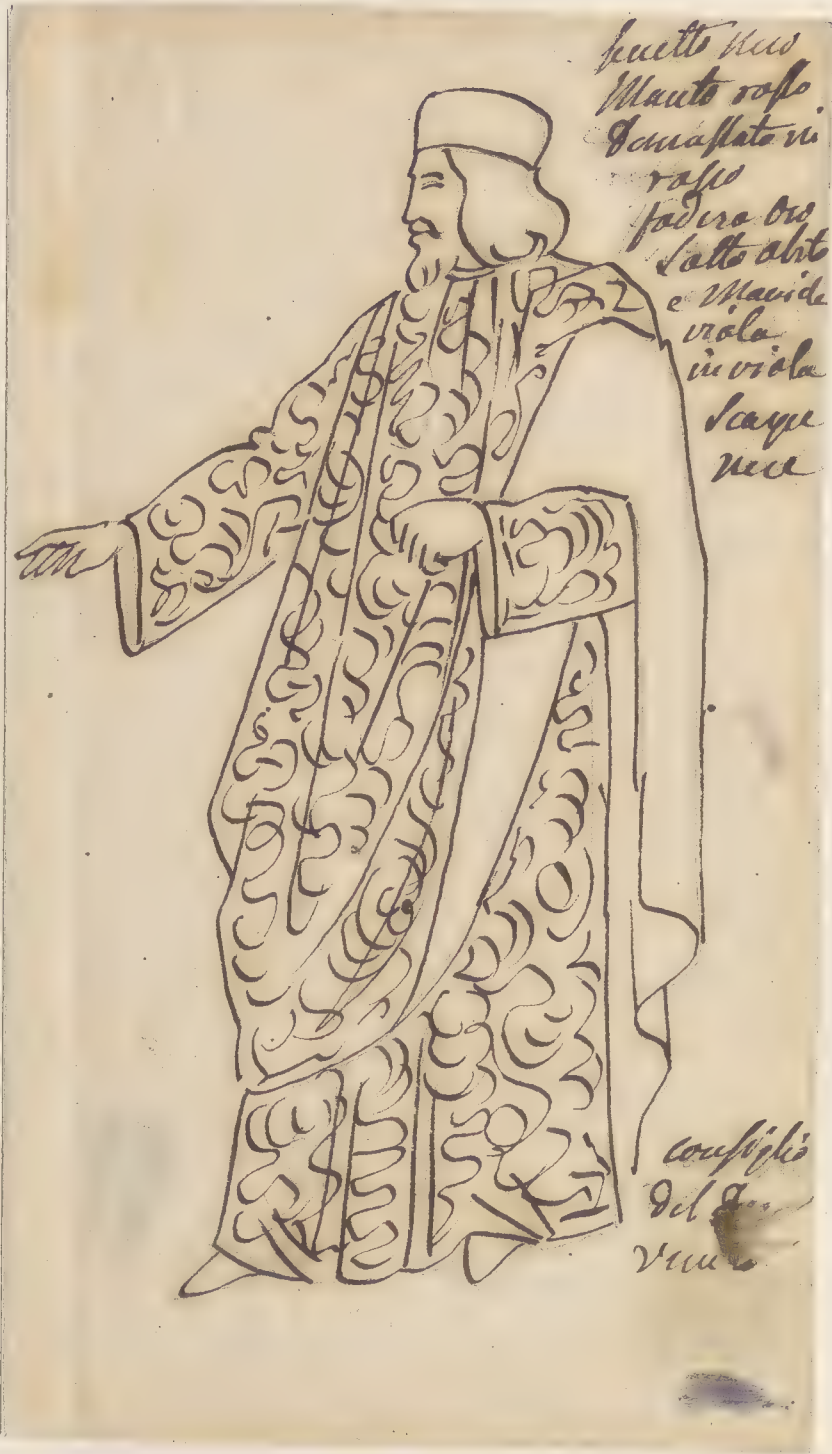 Manto rosso
Damascato in
rosso
fodera oro
Sotto abito
e Manica
viola
in viola
Scarpe
nere
consiglio
del